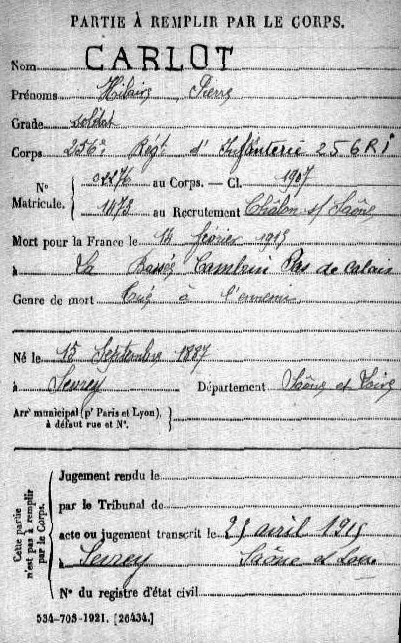 PARTIE À REMPLIR PAR LE CORPS.
Nom CARLOT
Prénoms Hilaire Pierre
Grade soldat
Corps 256e Régt d'Infanterie 256 RI
N° Matricule. au Corps. — Cl. 1907
1473 au Recrutement Châlon s/ Saône
Mort pour la France le février 1915
à La Bassée Cambrin Pas de Calais
Genre de mort Tué à l'ennemi
Né le 15 Septembre 1887
à Sevrey Département Saône et Loire
Arrt municipal (pr Paris et Lyon), à défaut rue et N°.
Cette partie n'est pas à remplir par le Corps.
Jugement rendu le
par le Tribunal de
acte ou jugement transcrit le avril 1915
à Sevrey Saône et Loire
N° du registre d'état civil
534-708-1921. [26434.]